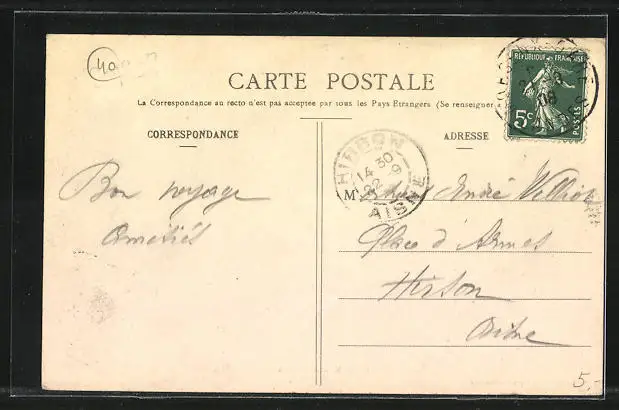 40
CARTE POSTALE
La Correspondance au recto n'est pas acceptée par tous les Pays Etrangers (Se renseigner
CORRESPONDANCE
ADRESSE
RÉPUBLIQUE FRANÇAISE
5c
POSTES
08
HIRSON
14 30
22 -9
AISNE
Bon voyage
Amitiés
M
André Williot
Place d'Armes
Hirson
Aisne
5,-